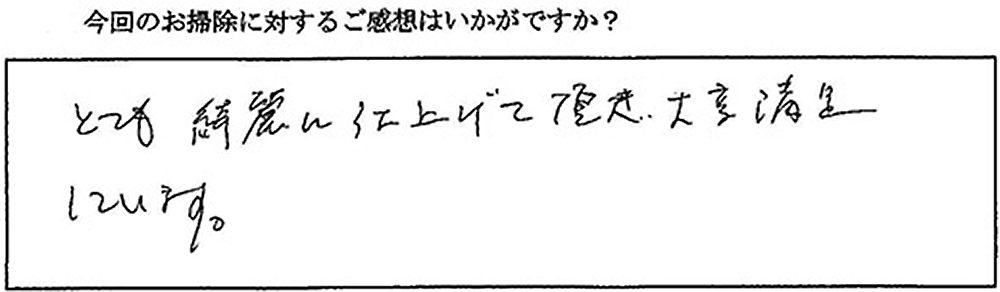 今回のお掃除に対するご感想はいかがですか？
とても綺麗に仕上げて頂き、大変満足
しています。